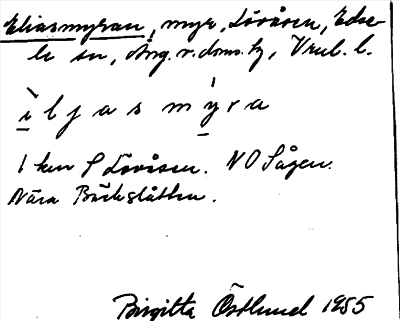 Eliasmyran, myr, Lövåsen, Edse-
le sn, Ång. v. doms. tg, Vnul. l.
ìljas mýra
1 km S Lövåsen. NO Sågen.
Nära Bäckslåtten.
Birgitta Östlund 1955